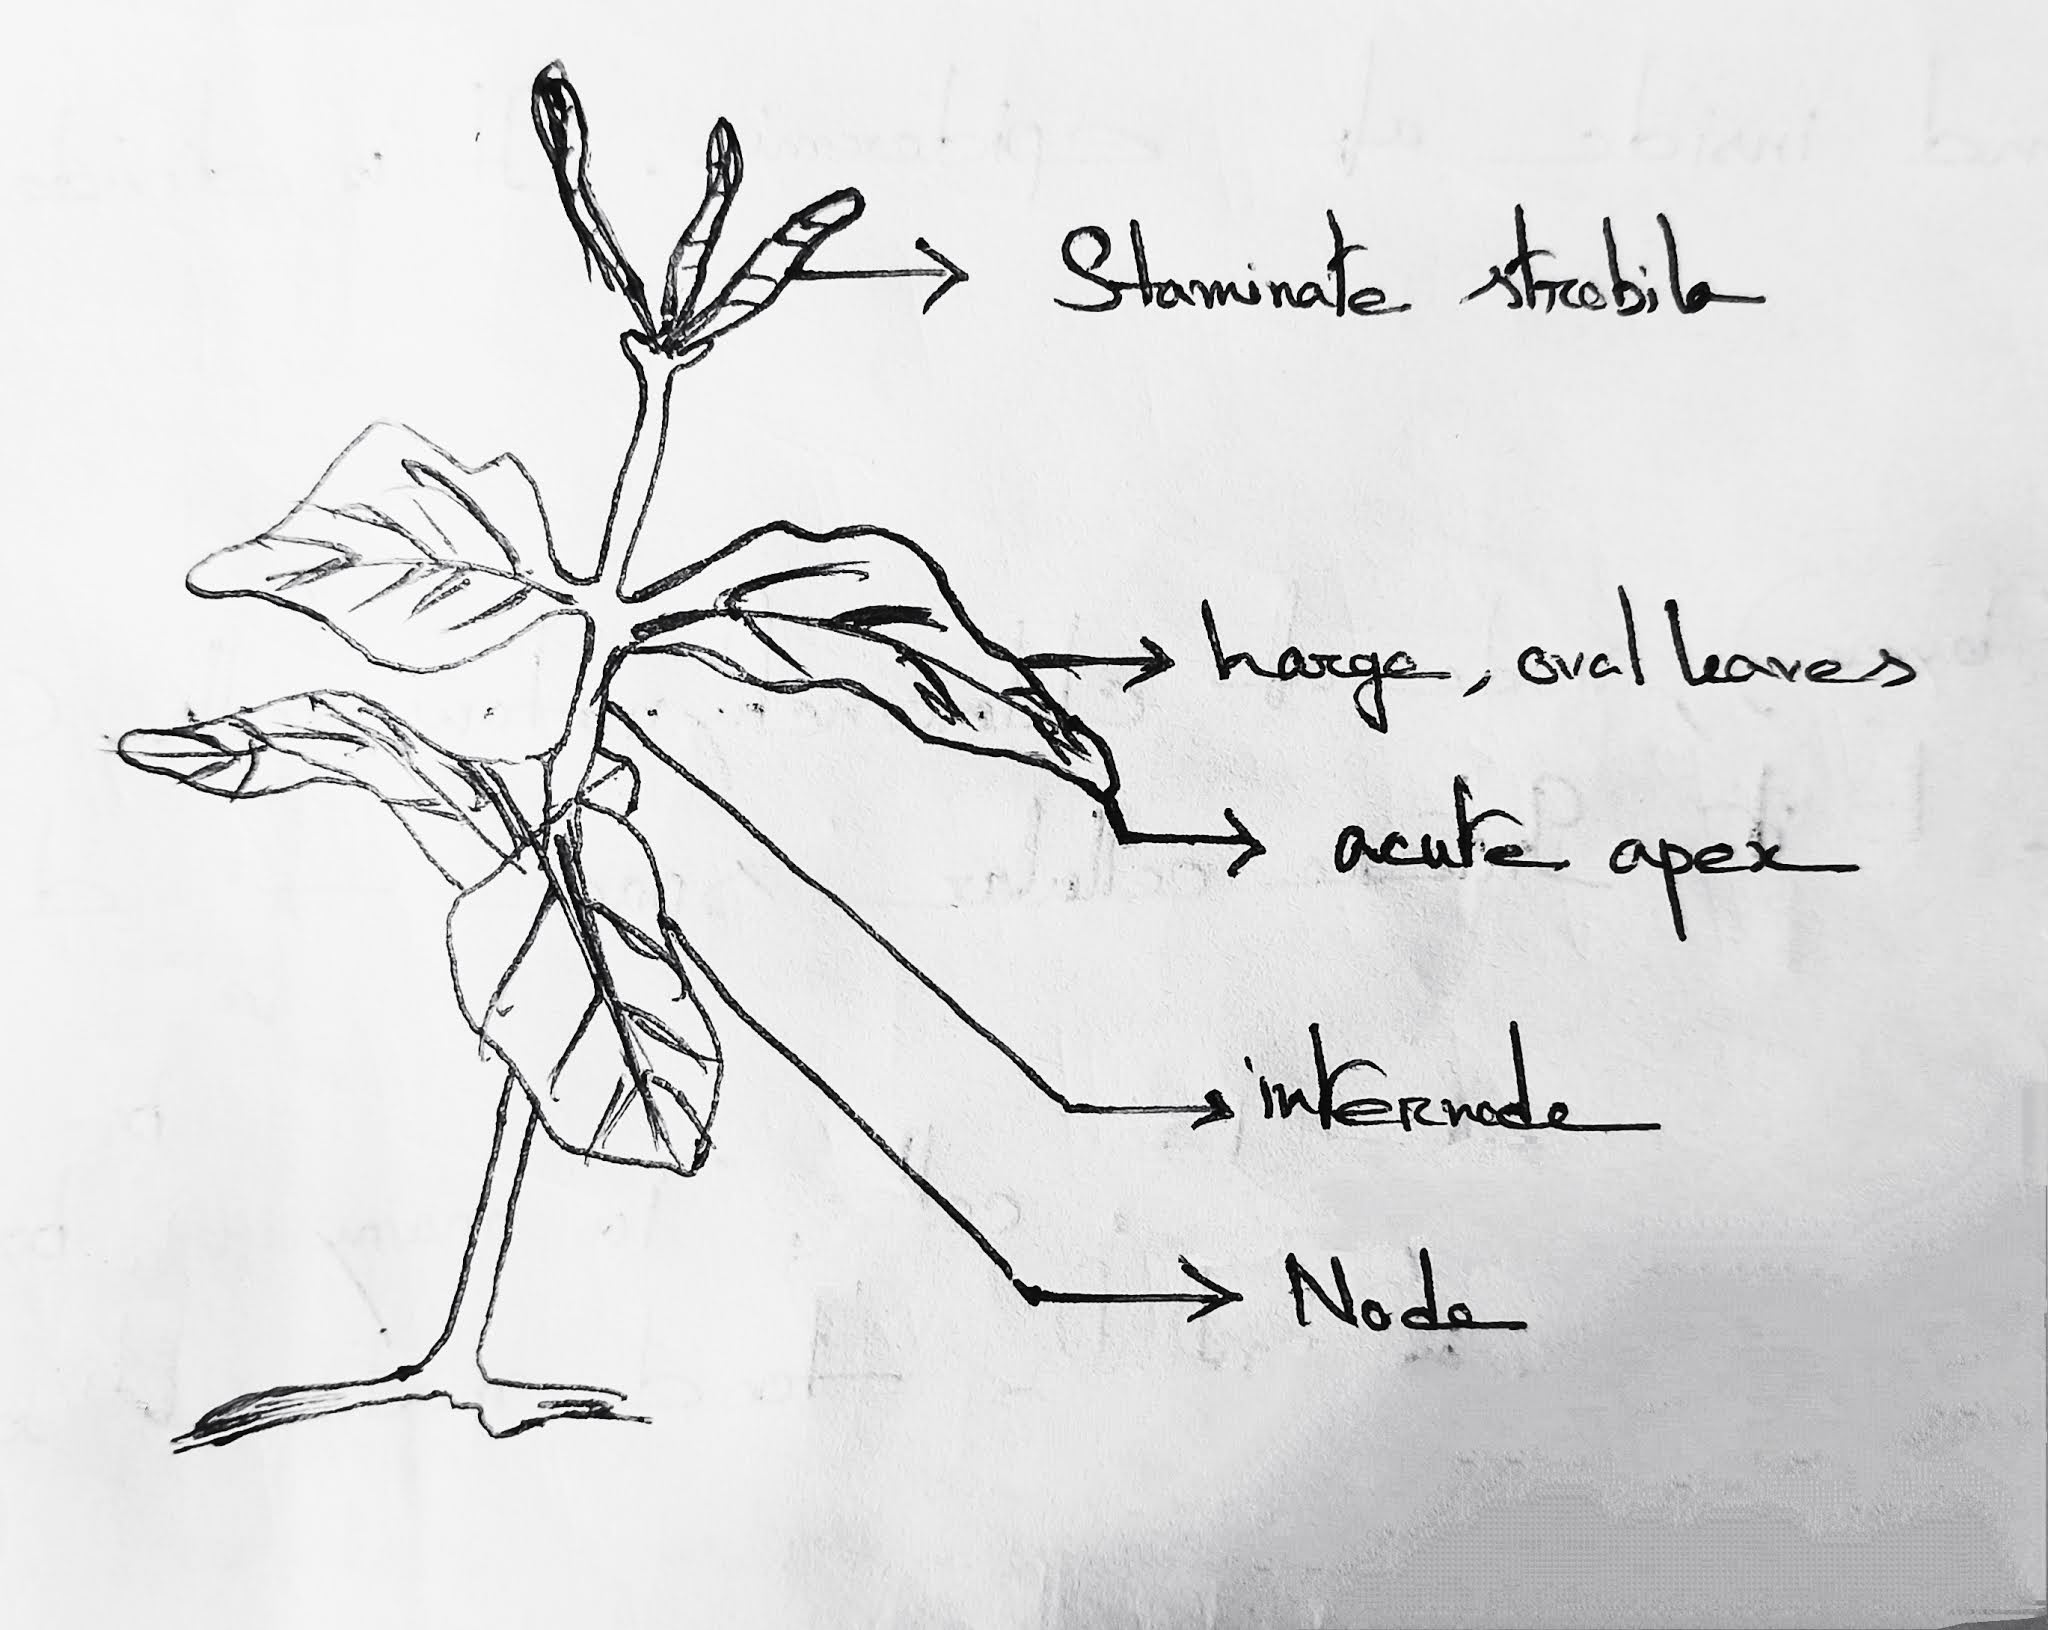 Staminate strobila
Large, oval leaves
acute apex
internode
Node